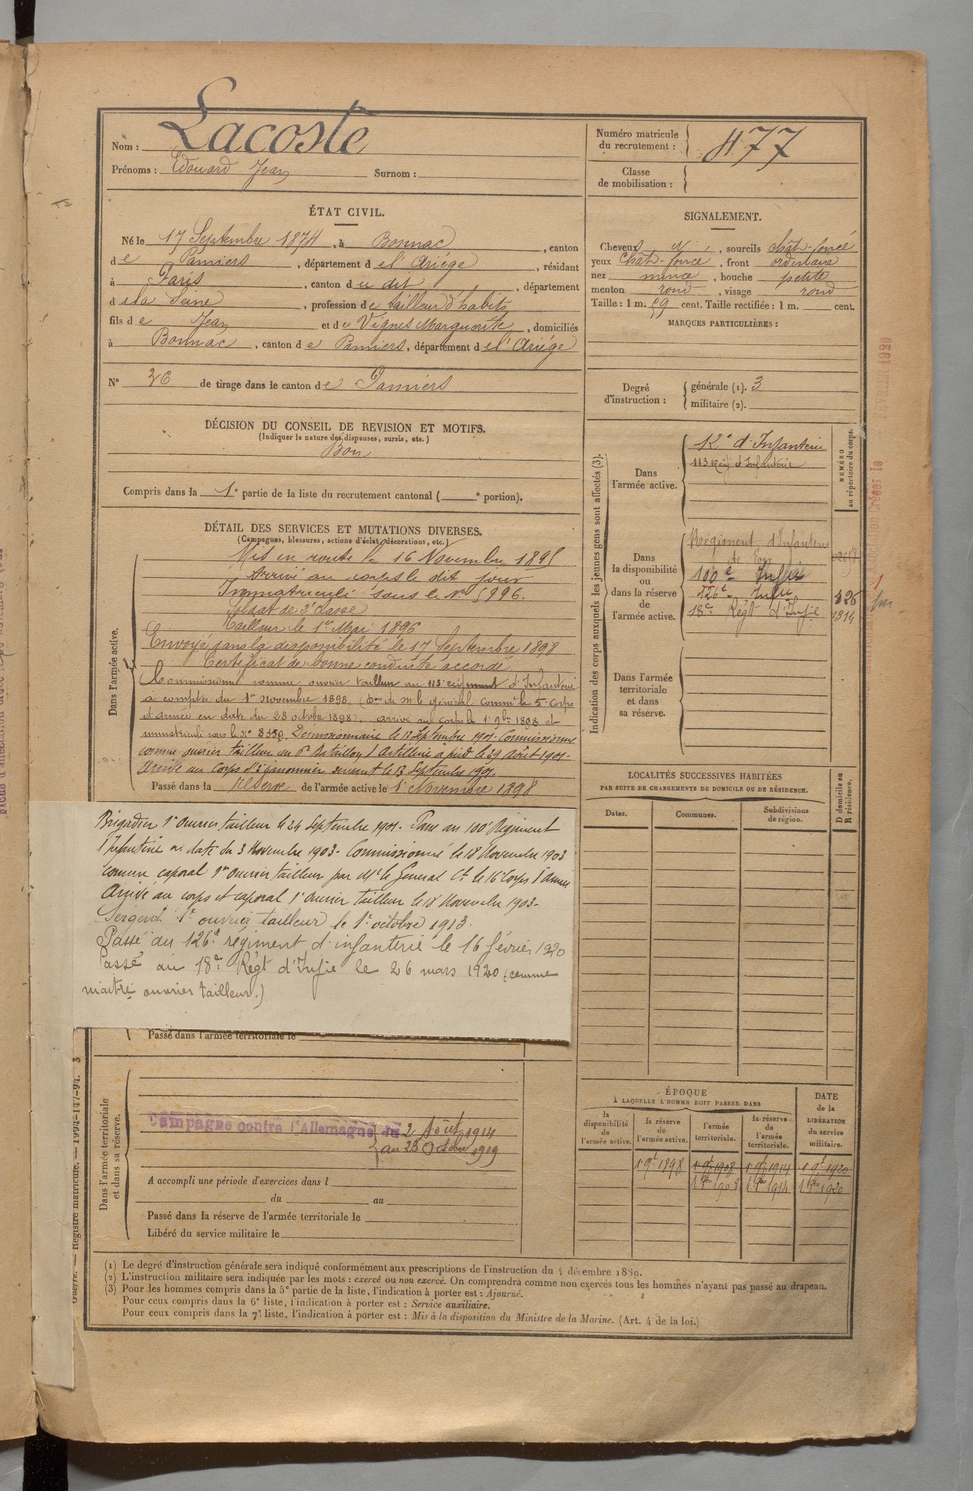 Nom : Lacoste
Prénoms : Edouard Jean Surnom :
Numéro matricule du recrutement : 477
Classe de mobilisation :
ÉTAT CIVIL.
Né le 17 Septembre 1874, à Bonnac, canton
de Pamiers, département de l'Ariège, résidant
à Paris, canton du dit, département
de la Seine, profession de tailleur d'habits
fils de Jean et de Vignes Marguerite, domiciliés
à Bonnac, canton de Pamiers, département de l'Ariège
N° 26 de tirage dans le canton de Pamiers
SIGNALEMENT.
Cheveux, sourcils Chât-foncé
yeux Chât-foncé, front ordinaire
nez mince, bouche petite
menton rond, visage rond
Taille : 1 m. 59 cent. Taille rectifiée : 1 m. cent.
MARQUES PARTICULIÈRES :
Degré d'instruction : générale (1). 3
militaire (2).
DÉCISION DU CONSEIL DE REVISION ET MOTIFS.
(Indiquer la nature des dispenses, sursis, etc.)
Bon
Compris dans la 1e partie de la liste du recrutement cantonal ( e portion).
DÉTAIL DES SERVICES ET MUTATIONS DIVERSES.
(Campagnes, blessures, actions d'éclat, décorations, etc.)
Dans l'armée active.
Mis en route le 16 Novembre 1895
Arrivé au corps le dit jour
Immatriculé sous le N° 5996.
Soldat de 2e classe
Tailleur le 1er Mai 1896
Envoyé dans la disponibilité le 17 Septembre 1898
Certificat de bonne conduite accordé
Commissionné comme ouvrier tailleur au 113e régiment d'Infanterie
à compter du 1er novembre 1898. (Don de mr le général commt le 5e Corps
d'armée en date du 28 octobre 1898). arrivé au corps le 1er 9bre 1898 et
immatriculé sous le N° Commissionné
comme ouvrier tailleur au Bataillon d'Artillerie à pied le 29 Août 1901.
Arrivé au Corps servant le 13 Septembre 1901.
Passé dans la réserve de l'armée active le 1er Novembre 1898
Brigadier 1er Ouvrier tailleur le 24 Septembre 1901. Passé au 100e Régiment
d'Infanterie en date du 3 Novembre 1903. Commissionné le 18 Novembre 1903
comme caporal 1er ouvrier tailleur par Mr le Général Ct le 16e Corps d'Armée
Arrivé au corps et caporal 1er ouvrier tailleur le 18 Novembre 1903.
Sergent 1er ouvrier tailleur le 1er octobre 1913.
Passé au 126e régiment d'infanterie le 16 février 1920
Passé au 18e Régt d'Infie le 26 mars 1920 (comme
maître ouvrier tailleur.)
Passé dans l'armée territoriale le
Dans l'armée territoriale et dans sa réserve.
Campagne contre l'Allemagne du 2 Août 1914
au 23 Octobre 1919
A accompli une période d'exercices dans l
du au
Passé dans la réserve de l'armée territoriale le
Libéré du service militaire le
Indication des corps auxquels les jeunes gens sont affectés (3).
NUMÉRO au répertoire du corps.
Dans l'armée active.
12e d'Infanterie
113 Régt d'Infanterie
Dans la disponibilité ou dans la réserve de l'armée active.
Régiment d'Infanterie
100e Inffie
126e Infie 126
18e Régt d'Infie 1314
Dans l'armée territoriale et dans sa réserve.
LOCALITÉS SUCCESSIVES HABITÉES
PAR SUITE DE CHANGEMENTS DE DOMICILE OU DE RÉSIDENCE.
Dates. Communes. Subdivisions de région. D domicile ou R résidence.
ÉPOQUE
À LAQUELLE L'HOMME DOIT PASSER DANS
la disponibilité de l'armée active. la réserve de l'armée active. l'armée territoriale. la réserve de l'armée territoriale.
DATE de la LIBÉRATION du service militaire.
1 9bre 1898 1 9bre 1908 1 9bre 1914 1 9bre 1920
(1) Le degré d'instruction générale sera indiqué conformément aux prescriptions de l'instruction du 4 décembre 1889.
(2) L'instruction militaire sera indiquée par les mots : exercé ou non exercé. On comprendra comme non exercés tous les hommes n'ayant pas passé au drapeau.
(3) Pour les hommes compris dans la 5e partie de la liste, l'indication à porter est : Ajourné.
Pour ceux compris dans la 6e liste, l'indication à porter est : Service auxiliaire.
Pour ceux compris dans la 7e liste, l'indication à porter est : Mis à la disposition du Ministre de la Marine. (Art. 4 de la loi.)